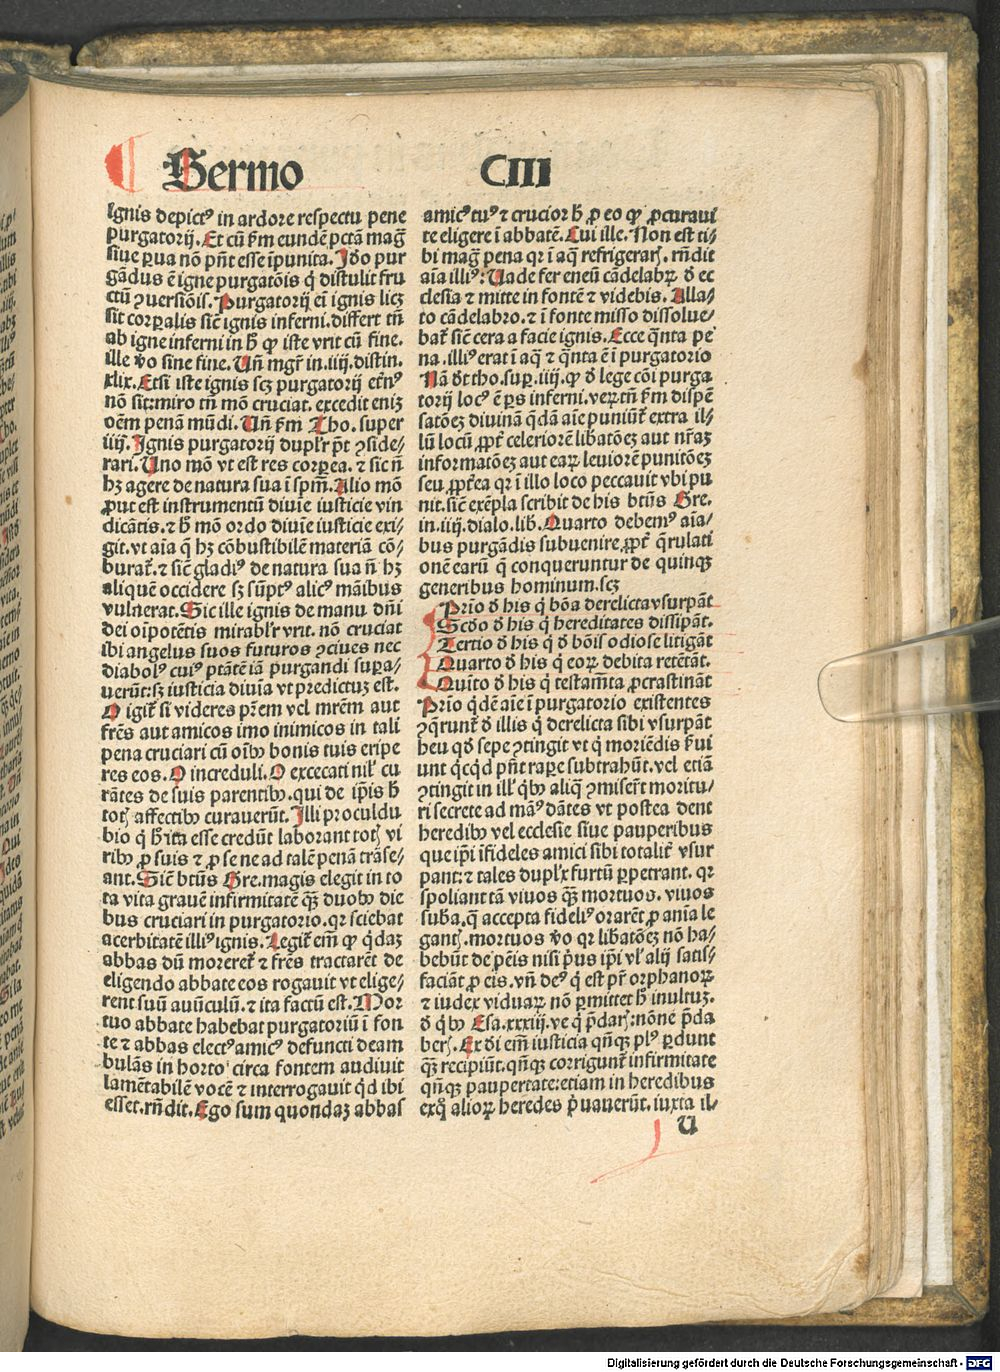 Sermo CIII
ignis depictꝰ in ardore respectu pene
purgatorij. Et cū ẜm eundē pctā maḡ
siue ꝑua nō pn̄t esse ĩpunita. Iđo pur
gādus ē igne purgatōis q̇ distulit fru
ctū ꝯuersiōis. Purgatorij em̄ ignis licꝫ
sit corꝑalis sič ignis inferni. differt tn̄
ab igne inferni in h̄ ꝙ iste vrit cū fine.
ille v̄o sine fine. Un̄ mgr̄ in .iiij. distin.
xlix. Etsi iste ignis scꝫ purgatorij etn̄ꝰ
nō sit: miro tn̄ mō cruciat. excedit eniꝫ
oēm penā mūdi. Un̄ ẜm Tho. super
iiij. Ignis purgatorij duplr̄ p̄t ꝯside-
rari. Uno mō vt est res corꝑea. ⁊ sic n̄
hꝫ agere de natura sua ĩ spm̄. Alio mō
ꝓut est instrumentū diuīe iusticie vin
dicātis. ⁊ h̄ mō ordo diuīe iusticie exi-
git. vt aīa q̄ hꝫ cōbustibilē materiā cō-
burat̄. ⁊ sič gladiꝰ de natura sua n̄ hꝫ
aliquē occidere sꝫ sūptꝰ alicꝰ māibus
vulnerat. Sic ille ignis de manu dn̄i
dei oīpotētis mirablr̄ vrit. nō cruciat
ibi angelus suos futuros ꝯciues nec
diabolꝰ cuiꝰ ptātē iā purgandi suꝑa-
uerūt: sꝫ iusticia diuīa vt predictuꝫ est.
O igit̄ si videres pr̄em vel mr̄em aut
fr̄es aut amicos imo inimicos in tali
pena cruciari cū oībꝰ bonis tuis eripe
res eos. O increduli. O excecati nil̄ cu
rātes de suis parentibꝰ. qui de ip̄is h̄
totꝭ affectibꝰ curauerūt. Illi proculdu
bio q̇ h̄ ita esse credūt laborant totꝭ vi
ribꝰ ꝓ suis ⁊ ꝓ se ne ad talē penā trāse-
ant. Sič btūs Gre. magis elegit in to
ta vita grauē infirmitatē qꝫ̄ duobꝰ die
bus cruciari in purgatorio. qr̄ sciebat
acerbitatē illiꝰ ignis. Legit̄ em̄ ꝙ q̇daꝫ
abbas dū moreret̄ ⁊ fr̄es tractarēt de
eligendo abbate eos rogauit vt elige-
rent suū auūculū. ⁊ ita factū est. Mor
tuo abbate habebat purgatoriū ĩ fon
te ⁊ abbas electꝰ amicꝰ defuncti deam
bulās in horto circa fontem audiuit
lamētabilē vocē ⁊ interrogauit q̇d ibi
esset. rn̄dit. Ego sum quondaꝫ abbas
amicꝰ tuꝰ ⁊ crucior h̄ ꝓ eo ꝙ ꝓcuraui
te eligere ĩ abbatē. Cui ille. Non est ti-
bi maḡ pena qr̄ ĩ aq̄ refrigerarꝭ. rn̄dit
aīa illiꝰ: Uade fer eneū cādelabrꝝ đ ec
clesia ⁊ mitte in fontē ⁊ videbis. Alla-
to cādelabro. ⁊ ĩ fonte misso dissolue-
bat̄ sič cera a facie ignis. Ecce q̄nta pe
na illiꝰ erat ĩ aq̄ ⁊ q̄nta ē ĩ purgatorio
Nā đt tho. suꝑ .iiij. ꝙ đ lege cōi purga
torij locꝰ ē ꝑs inferni. veꝝtn̄ ẜm dispē
satōeꝫ diuinā q̄dā aīe puniūt̄ extra il-
lū locū ꝓpt̄ celeriorē libatōeꝫ aut nr̄aꝫ
informatōeꝫ aut eaꝝ leuiorē punitōeꝫ
seu ꝓpt̄ea qr̄ ĩ illo loco peccauit vbi pu
nit. sič exēpla scribit de his btūs Gre.
in .iiij. dialo. lib. Quarto debemꝰ aīa-
bus purgādis subuenire ꝓpt̄ q̄rulati
onē earū q̄ conqueruntur de quinqꝫ
generibus hominum. scꝫ
Prīo đ his q̇ bōa derelicta vsurpāt
Scđo đ his q̇ hereditates dissipāt.
Tertio đ his q̇ đ bōis odiose litigāt
Quarto đ his q̇ eoꝝ debita retētāt.
Quīto đ his q̇ testam̄ta ꝓcrastināt
Prīo q̇dē aīe ĩ purgatorio existentes
ꝯq̄runt̄ đ illis q̇ derelicta sibi vsurpāt
heu qđ sepe ꝯtingit vt q̇ moriēdis ẜui
unt q̇cq̇d pn̄t raꝑe subtrahūt. vel etiā
ꝯtingit in ill̄ q̇bꝰ aliq̄ ꝯmiserūt moritu-
ri secrete ad manꝰ dātes vt postea dent
heredibꝰ vel ecclesie siue pauperibus
que ip̄i ĩfideles amici sibi totalit̄ vsur
pant: ⁊ tales duplx̄ furtū ꝑpetrant. qr̄
spoliant tā viuos qꝫ̄ mortuos. viuos
suba. q̄ accepta fideliꝰ orarēt ꝓ anīa le
gantꝭ. mortuos v̄o qr̄ libatōeꝫ nō ha-
bebūt de penis nisi pͥus ip̄i vl̓ alij satis-
faciāt ꝓ eis. vn̄ deꝰ q̇ est pr̄ orphanoꝝ
⁊ iudex viduaꝝ nō ꝑmittet h̄ inultuꝫ.
đ q̇bꝰ Esa. xxxiij. ve q̇ p̄darꝭ: nōne p̄da
berꝭ. Ex đi em̄ iusticia qn̄qꝫ plꝰ ꝑdunt
qꝫ̄ recipiūt. qn̄qꝫ corrigunt̄ infirmitate
qn̄qꝫ paupertate: etiam in heredibus
exq̇ alioꝝ heredes pͥuauerūt. iuxta il-
U
Digitalisierung gefördert durch die Deutsche Forschungsgemeinschaft - DFG